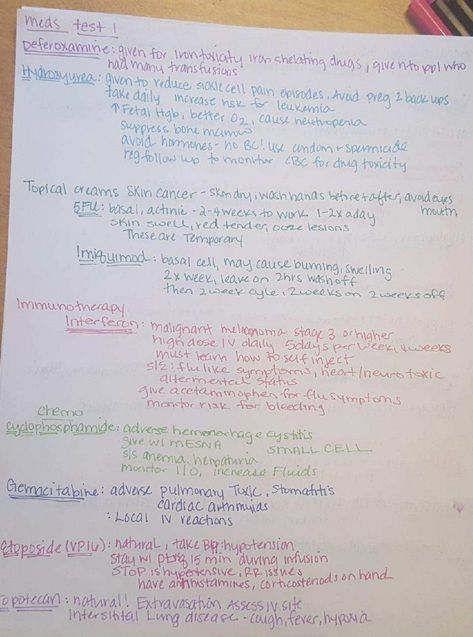 meds test 1
Deferoxamine: given for iron toxicity iron shelating drugs, given to ppl who
had many transfusions
Hydroxyurea: given to reduce sickle cell pain episodes. Avoid preg 2 back ups
take daily increase risk for leukemia
↑ Fetal Hgb, better O2, cause neutropenia
suppress bone marrow
avoid hormones - no BC! use condom + spermicide
reg follow up to monitor CBC for drug toxicity
Topical creams skin cancer - skin dry, wash hands before + after, avoid eyes
mouth
5FU: basal, actinic - 2-4 weeks to work 1-2x a day
skin swell, red tender, ooze lesions
These are Temporary
Imiquimod: basal cell, may cause burning, swelling
2x week, leave on 2hrs wash off
then 2 week cycle, 2 weeks on 2 weeks off
Immunotherapy
Interferon: malignant melanoma stage 3 or higher
high dose IV daily 5 days per week, 4 weeks
must learn how to self inject
flu like symptoms, heart/neuro toxic
alter mental status
give acetaminophen for flu symptoms
monitor risk for bleeding
Chemo
cyclophosphamide: adverse hemorrhage cystitis
give w/ MESNA SMALL CELL
s/s anemia, hematuria
monitor I/O, increase Fluids
Gemacitabine: adverse pulmonary toxic, stomatitis
cardiac arrhthmyias
: Local IV reactions
etoposide (VP16): natural, take BP: hypotension
stay w/ pt 15 min during infusion
STOP is hypertensive, RR issues
have antihistamines, corticosteroids on hand
opotecan: natural! Extravasation Assess IV site
Intersitital Lung disease - cough, fever, hypoxia